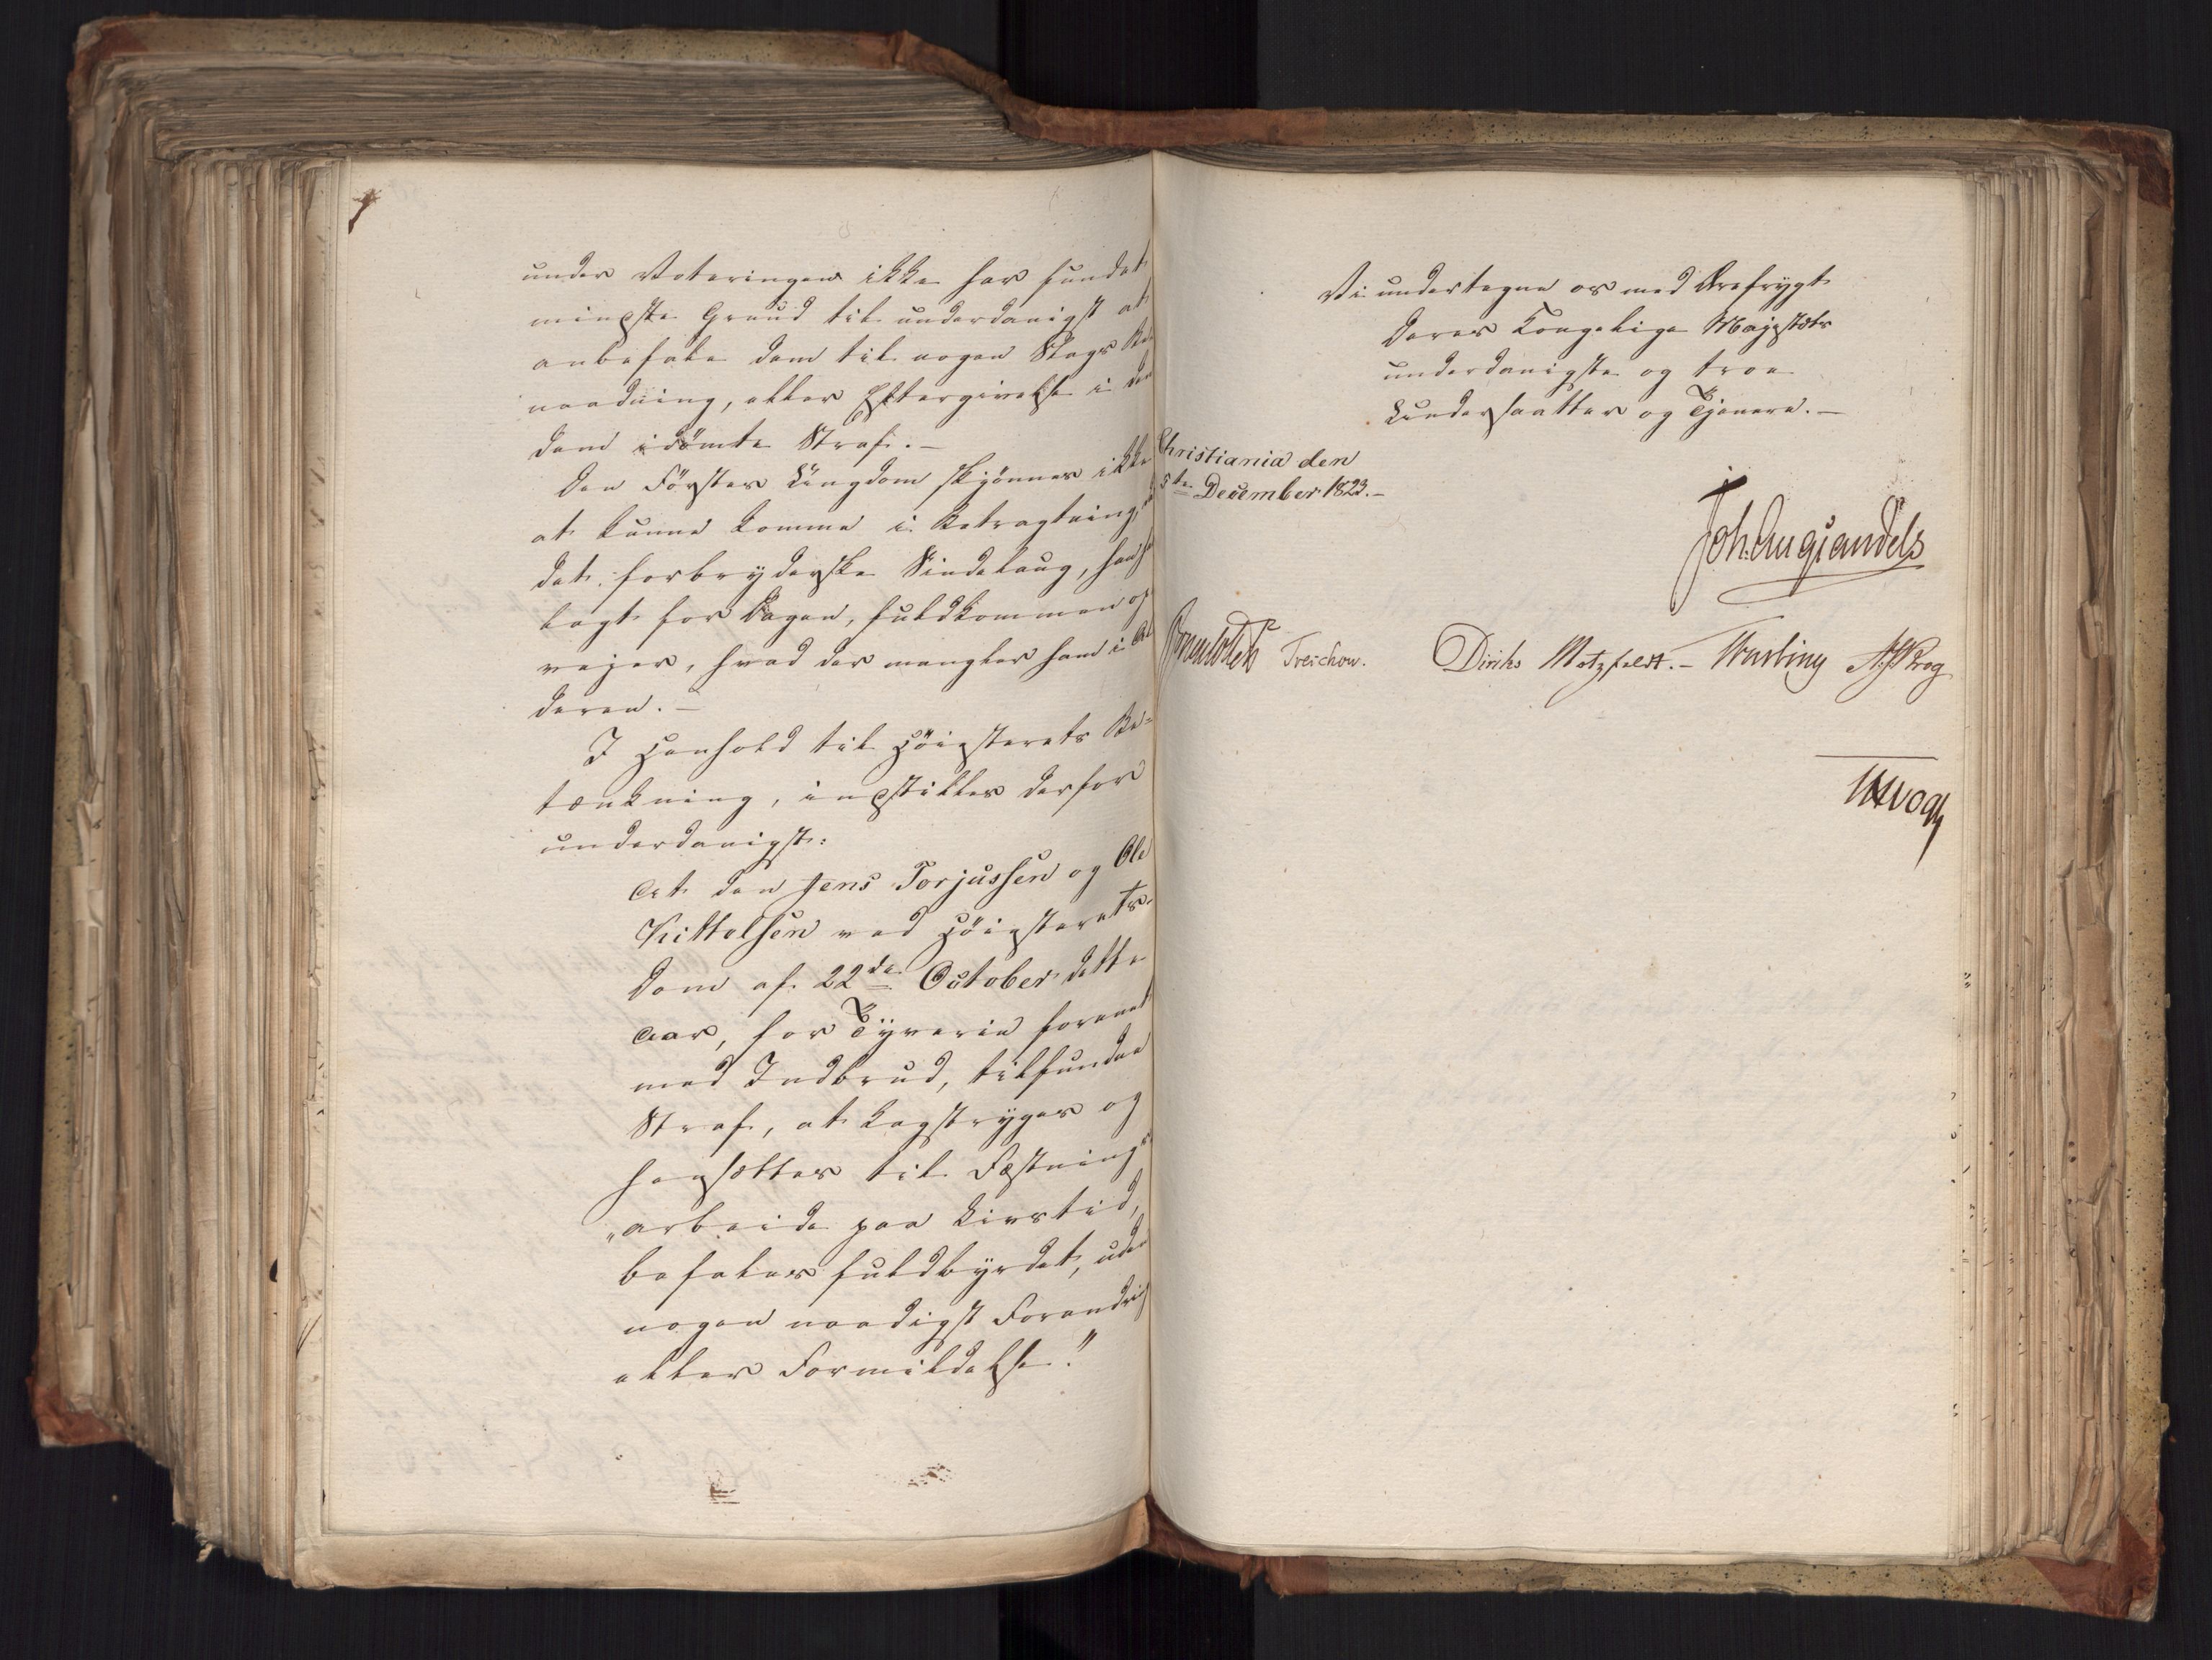 under Voteringen ikke har fundet
mindste Grund til underdanigst at
anbefale dem til nogen Slags Be-
naadning, eller Eftergivelse i den
dem idömte Straf. —
Den Förstes Ungdom skjönnes ikke
at kunne komme i Betragtning,
det forbryderske Sindelaug, han har
lagt for Dagen, fuldkommen op
vejer, hvad der mangler ham i Al
deren. —
I Henhold til Höiesterets Be=
tænkning, indstilles derfor
underdanigst:
At den Jens Torjussen og Ole
Kittelsen ved Höiesterets
Dom af 22de October dette
Aar, for Tyverie forenet
med Indbrud, tilfundne
Straf, at kagstryges og
hensættes til Fæstnings
„arbeide paa Livstid,
befales fuldbyrdet, uden
nogen naadigst Forandring
eller Formildelse."
Vi undertegne os med Ærefrygt
Deres Kongelige Majestæts
underdanigste og troe
Undersaatter og Tjenere. —
Christiania den
5te December 1823. —
Joh. Aug. Sandels
Sommerhielm Treschow. Diriks Motzfeldt. — Krog